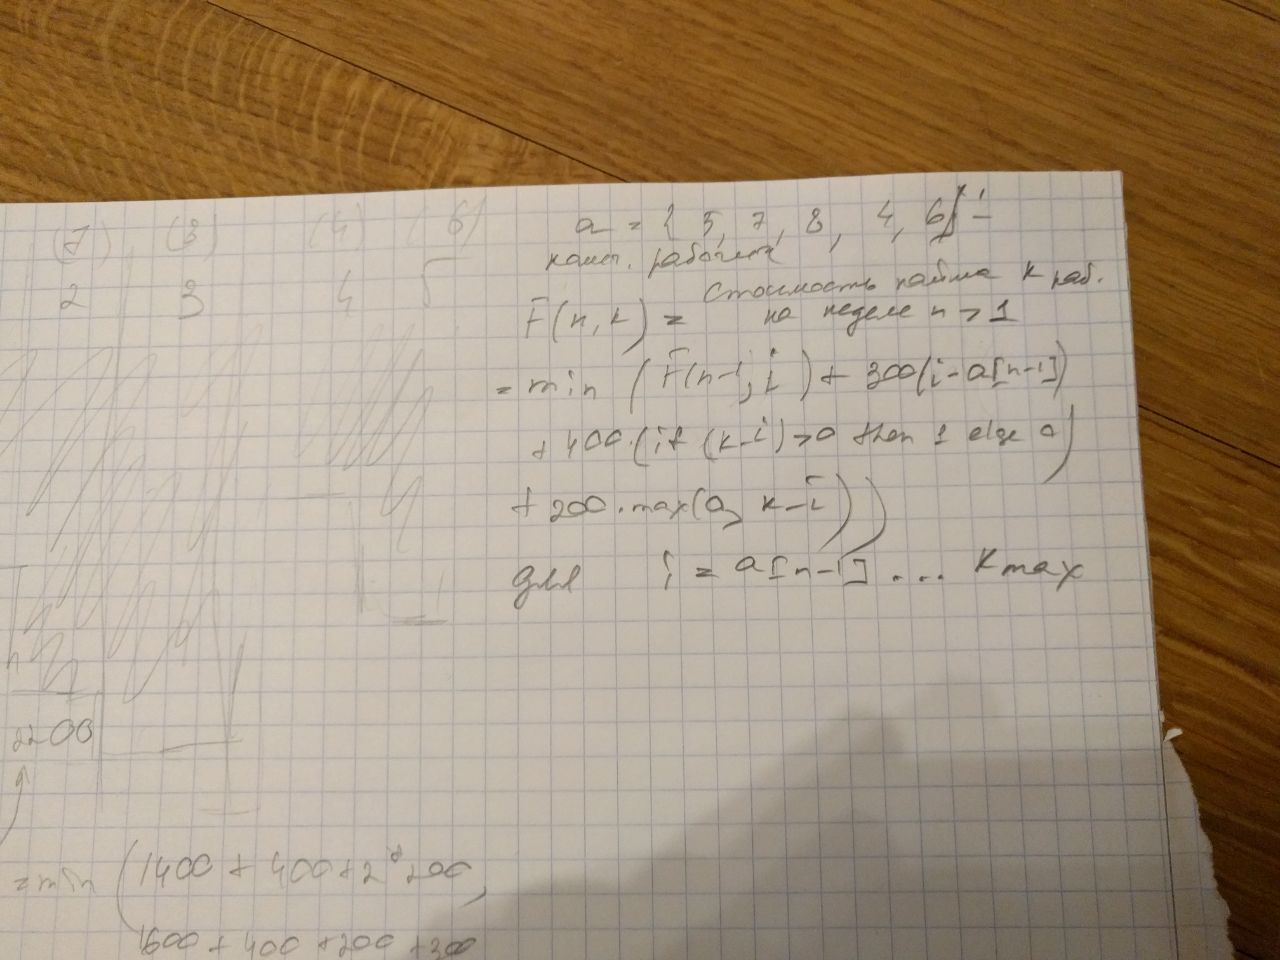 (7) (8) (4) (6)
2 3 4 5
a = { 5, 7, 8, 4, 6} -
рабочих
F(n, k) = стоимость найма k раб.
на неделе n > 1
= min (F(n-1, i) + 300(i-a[n-1])
+ 400·(if (k-i)>0 then 1 else 0)
+ 200·max(0, k-i))
для i = a[n-1] ... kmax
2200
= min (1400 + 400 + 2*200,
1600 + 400 + 200 + 300